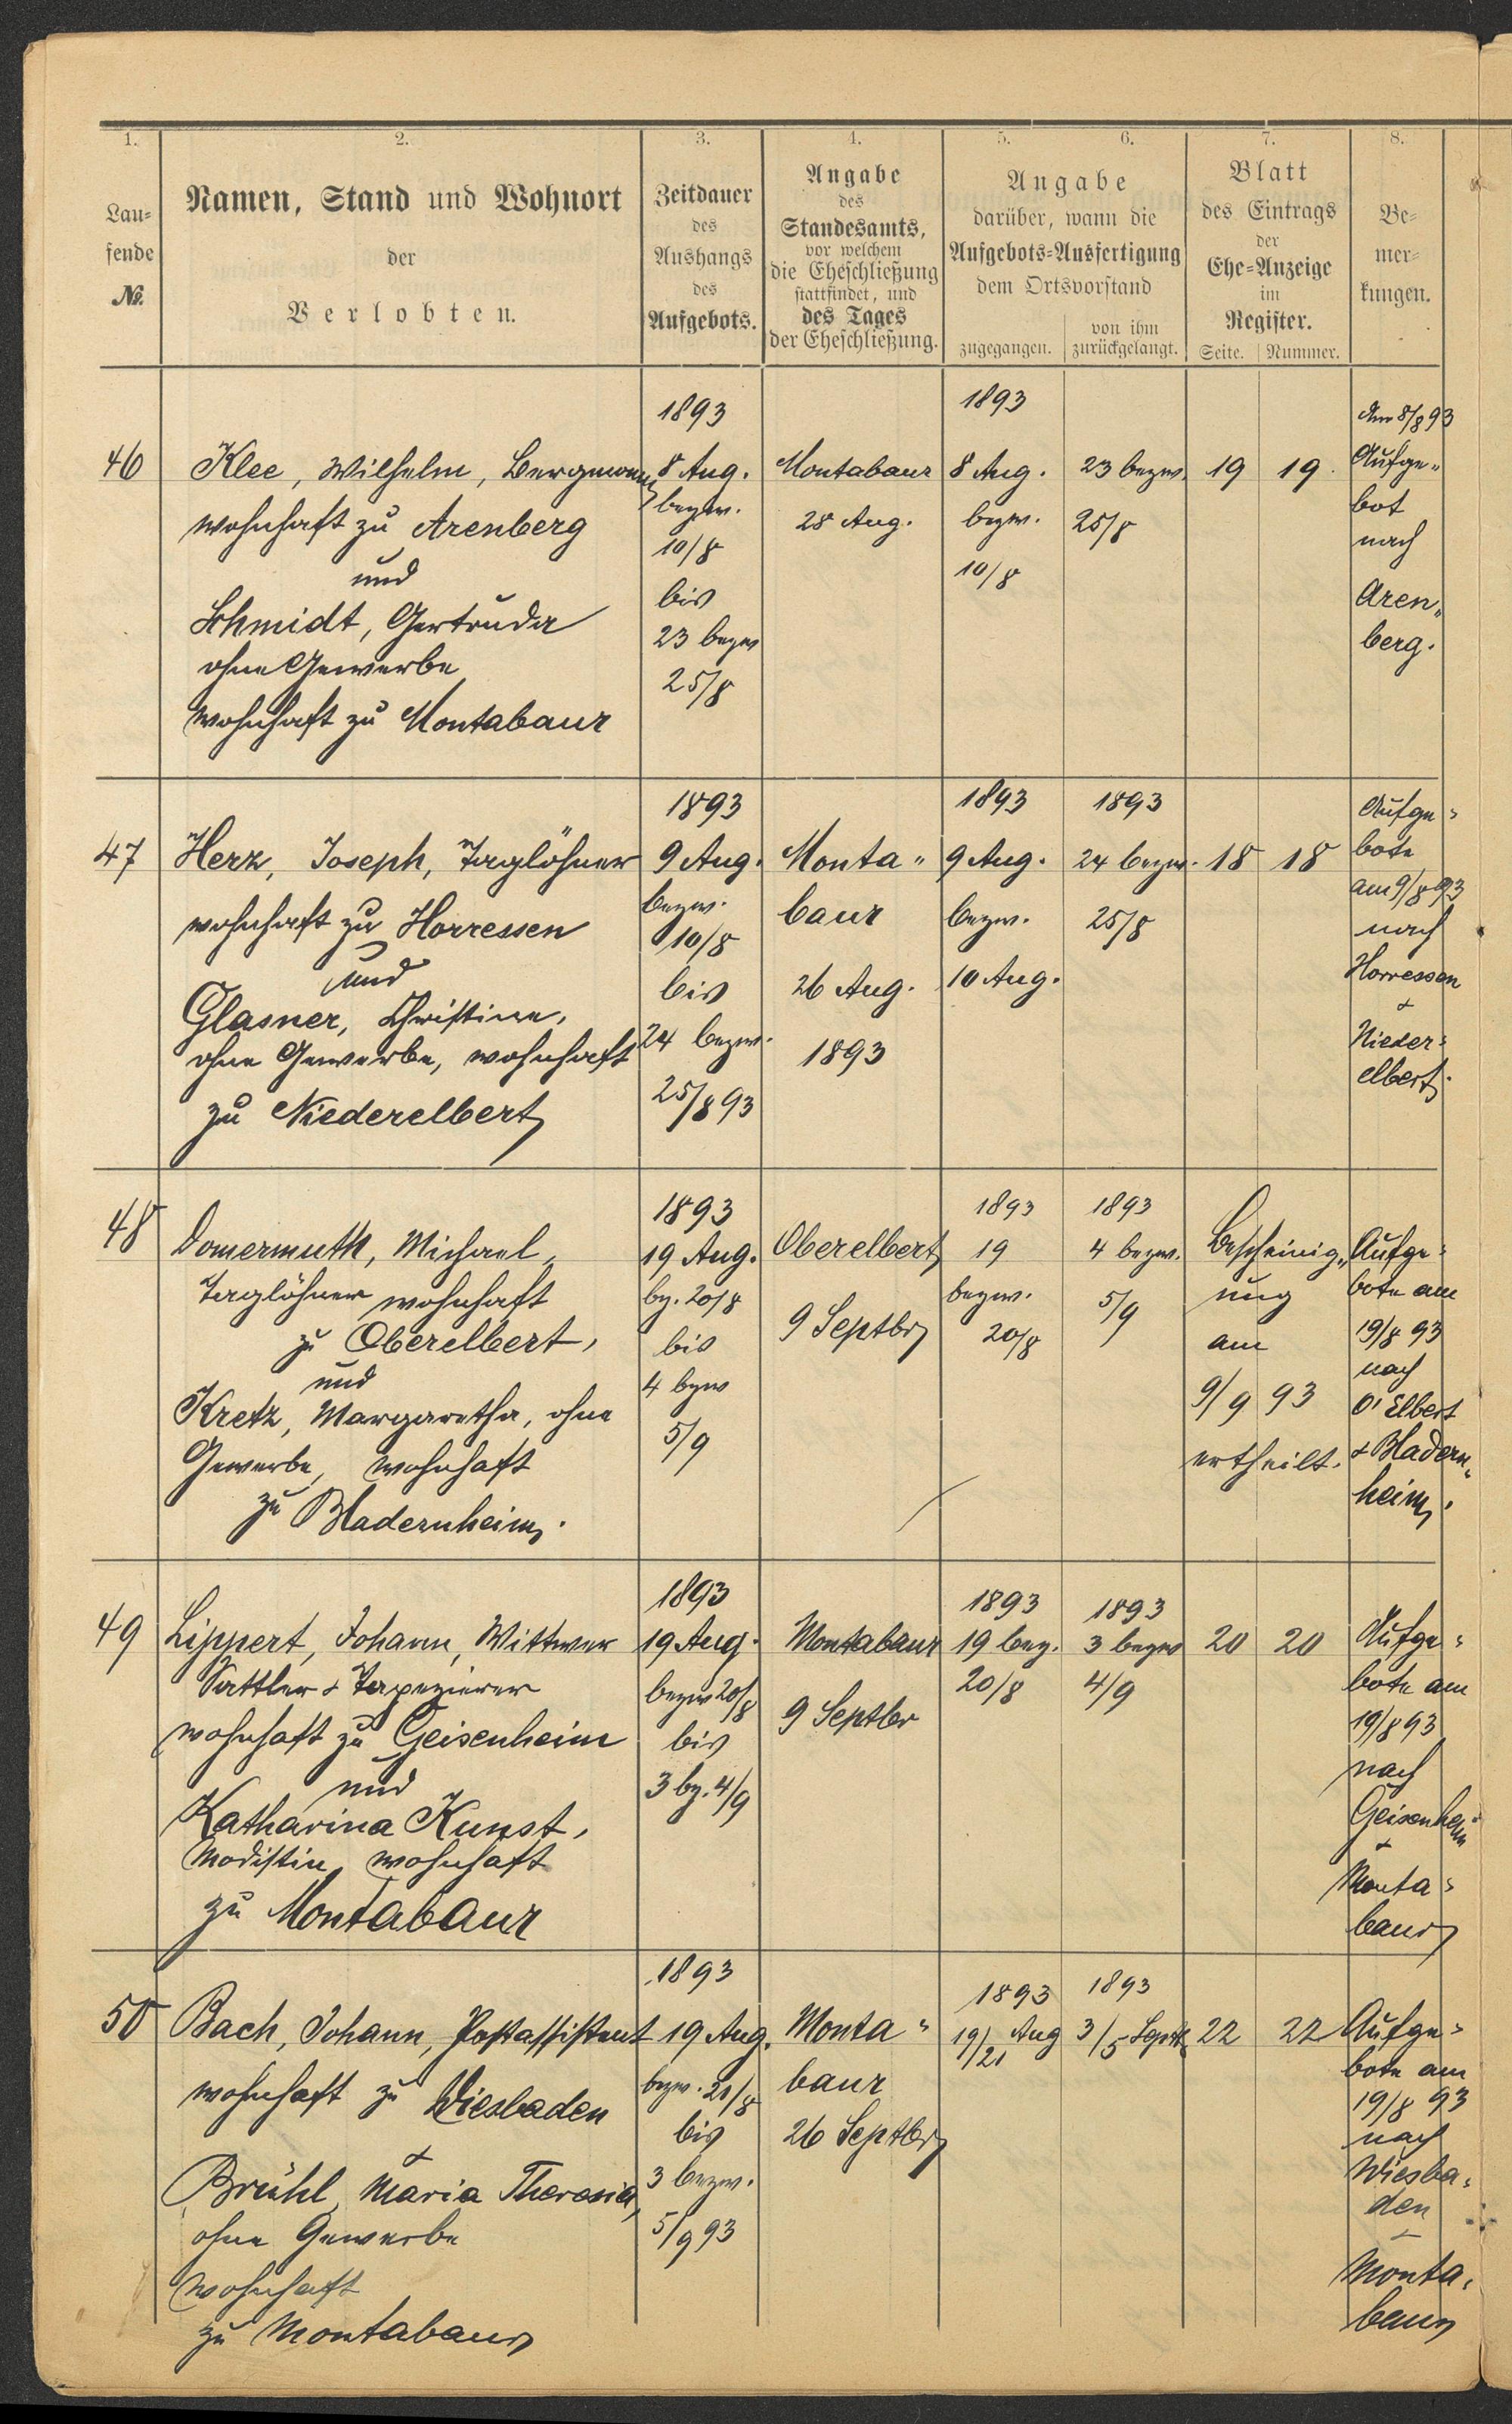 1. 2. 3. 4. 5. 6. 7. 8.
Lau=
fende
No.
Namen, Stand und Wohnort
der
Verlobten.
Zeitdauer
des
Aushangs
des
Aufgebots.
Angabe
des
Standesamts,
vor welchem
die Eheschließung
stattfindet, und
des Tages
der Eheschließung.
Angabe
darüber, wann die
Aufgebots=Ausfertigung
dem Ortsvorstand
zugegangen.
von ihm
zurückgelangt.
Blatt
des Eintrags
der
Ehe=Anzeige
im
Register.
Seite. Nummer.
Be=
mer=
kungen.
46
Klee, Wilhelm, Bergmann
wohnhaft zu Arenberg
und
Schmidt, Gertruda
ohne Gewerbe
wohnhaft zu Montabaur
1893
8 Aug.
bezw.
10/8
bis
23 bezw
25/8
Montabaur
28 Aug.
1893
8 Aug.
bezw.
10/8
23 bezw.
25/8
19 19.
Am 8/8 93
Aufge„
bot
nach
Aren„
berg.
47
Herz, Joseph, Taglöhner
wohnhaft zu Horressen
und
Glasner, Christine,
ohne Gewerbe, wohnhaft
zu Niederelbert
1893
9 Aug.
bezw.
10/8
bis
24 bezw.
25/8 93
Monta„
baur
26 Aug.
1893
1893
9 Aug.
bezw.
10 Aug.
1893
24 bezw.
25/8
18 18
Aufge=
bote
am 9/8 93
nach
Horressen
&
Nieder=
elbert.
48
Domermuth, Michael,
Taglöhner wohnhaft
zu Oberelbert,
und
Kretz, Margaretha, ohne
Gewerbe, wohnhaft
zu Bladernheim.
1893
19 Aug.
bz. 20/8
bis
4 bzw
5/9
Oberelbert
9 Septbr
1893
19
bezw.
20/8
1893
4 bezw.
5/9
Bescheinig„
ung
am
9/9 93
ertheilt.
Aufge=
bote am
19/8 93
nach
O'Elbert
& Bladern„
heim.
49
Lippert, Johann, Wittwer
Sattler & Tapezierer
wohnhaft zu Geisenheim
und
Katharina Kunst,
Modistin, wohnhaft
zu Montabaur
1893
19 Aug.
bezw 20/8
bis
3 bz. 4/9
Montabaur
9 Septbr
1893
19 bez.
20/8
1893
3 bezw
4/9
20 20
Aufge=
bote am
19/8 93
nach
Geisenheim
&
Monta=
baur
50
Bach, Johann, Postassistent
wohnhaft zu Wiesbaden
&
Brühl, Maria Theresia,
ohne Gewerbe
wohnhaft
zu Montabaur
1893
19 Aug.
bezw. 21/8
bis
3 bezw.
5/9 93
Monta„
baur
26 Septbr
1893
19/21 Aug
1893
3/5 Septb
22 22
Aufge=
bote am
19/8 93
nach
Wiesba=
den
&
Monta=
baur